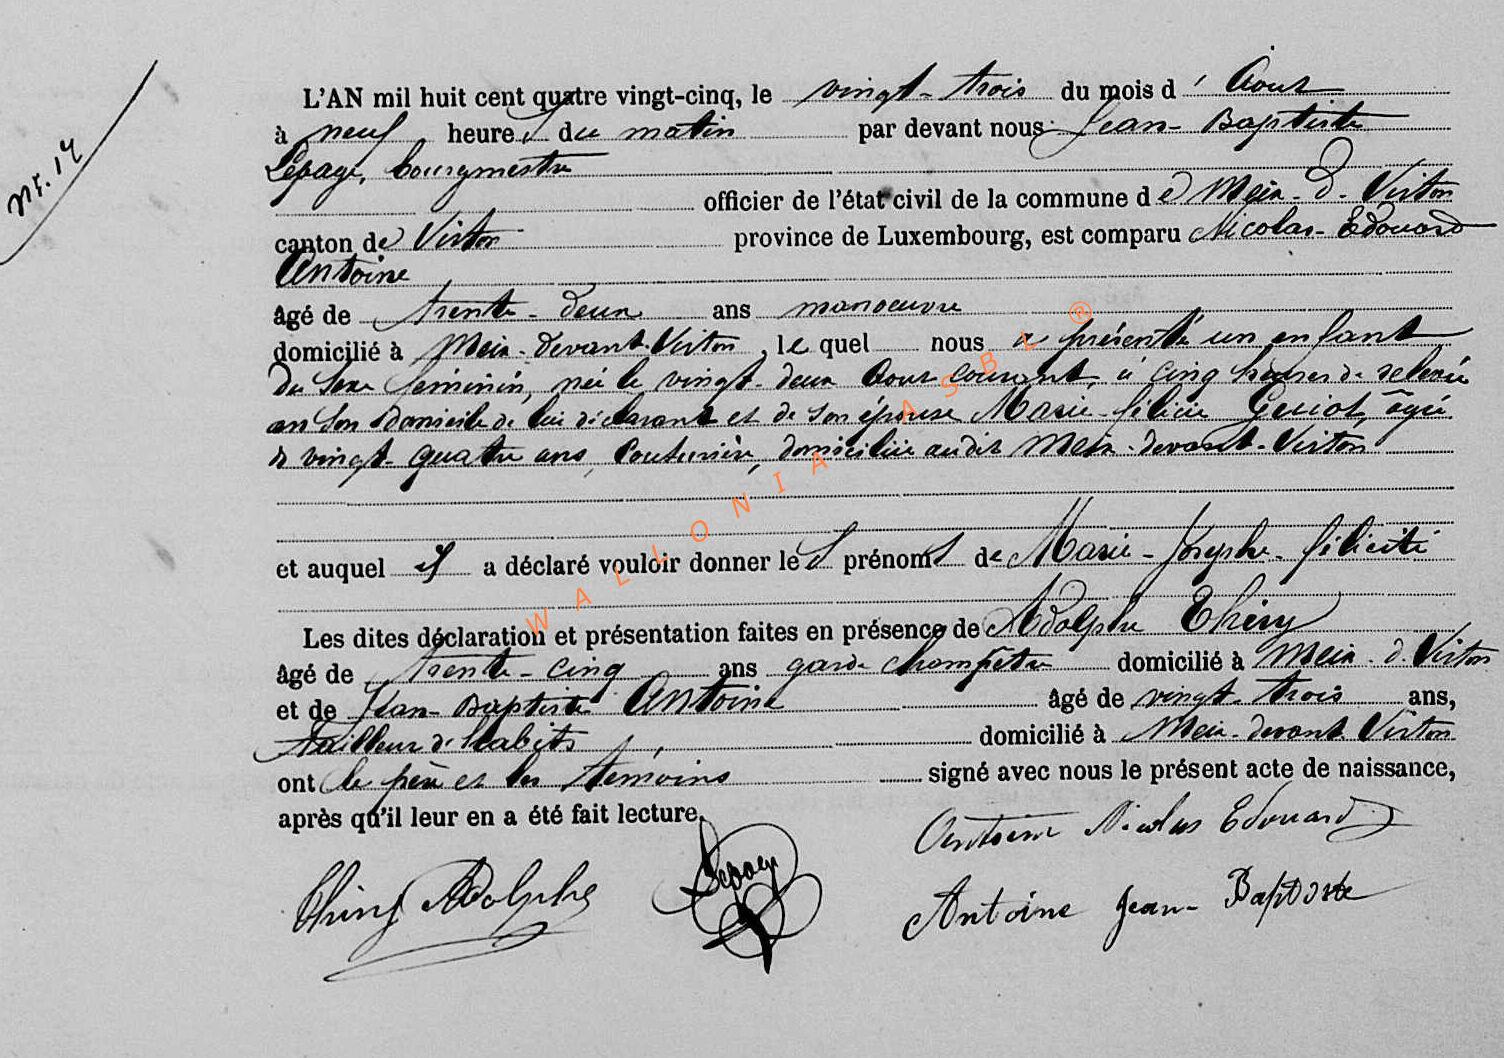 N°. 17
L'AN mil huit cent quatre vingt-cinq, le vingt-trois du mois d'Aout
à neuf heures du matin par devant nous Jean-Baptiste
Lepage, bourgmestre
officier de l'état civil de la commune de Meix-d-Virton
canton de Virton province de Luxembourg, est comparu Nicolas-Edouard
Antoine
âgé de trente-deux ans manoeuvre
domicilié à Meix-devant-Virton, lequel nous a présenté un enfant
du sexe féminin, née le vingt-deux Aout courant, à cinq heures de relevée
en son domicile de lui déclarant et de son épouse Marie-Félicie Guiot, âgée
de vingt-quatre ans, couturière, domiciliée audit Meix-devant-Virton
et auquel il a déclaré vouloir donner les prénoms de Marie-Josephe-Félicité
Les dites déclaration et présentation faites en présence de Adolphe Thiry
âgé de trente-cinq ans garde champêtre domicilié à Meix-d-Virton
et de Jean-Baptiste Antoine âgé de vingt-trois ans,
tailleur d'habits, domicilié à Meix-devant Virton
ont le père et les témoins signé avec nous le présent acte de naissance,
après qu'il leur en a été fait lecture.
Antoine Nicolas Edouard
Thiry Adolphe Lepage
Antoine Jean-Baptiste
WALLONIA ASBL ®